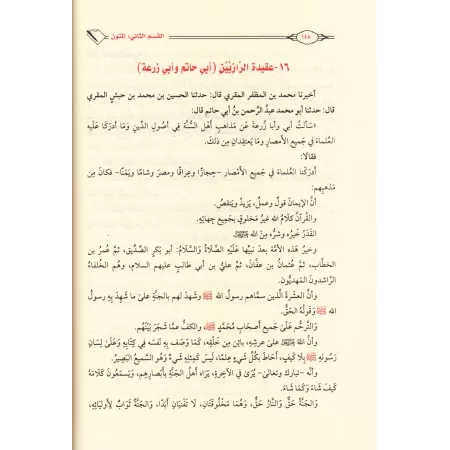 ١٤٨ القسم الثاني: المتون
١٦- عقيدة الرَّازِيَّيْنِ (أبي حاتم وأبي زرعة)
أخبرنا محمد بن المظفر المقري قال: حدثنا الحسين بن محمد بن حبش المقري
قال: حدثنا أبو محمد عبدُ الرَّحمنِ بنُ أبي حاتمٍ قال:
«سَألتُ أبي وأبا زُرعةَ عَن مَذاهبِ أَهْلِ السُّنَّةِ فِي أُصُولِ الدِّينِ وَمَا أدرَكَا عَلَيهِ
العُلماءَ فِي جَميعِ الأَمْصَارِ وَمَا يَعتقِدانِ مِن ذلِكَ.
فقالا:
أَدرَكنَا العُلماءَ فِي جَميعِ الأَمْصَارِ -حِجازًا وعِراقًا ومصرَ وشامًا ويَمَنًا- فكانَ مِن
مَذهبِهم:
أَنَّ الإيمانَ قولٌ وعملٌ، يَزيدُ ويَنقصُ.
والقُرآنُ كَلامُ اللهِ غيرُ مَخلوقٍ بجَميعِ جِهاتِهِ.
والقَدَرُ خَيرُه وشرُّه مِنَ اللهِ ﷻ.
وخيرُ هَذه الأمَّةِ بعدَ نبيِّها عَلَيْهِ الصَّلَاةُ وَالسَّلَامُ: أبو بَكرٍ الصِّديقِ، ثمَّ عُمرُ بن
الخطَّاب، ثمَّ عُثمانُ بن عفَّانَ، ثمَّ عليُّ بن أبي طالبٍ عليهم السلام، وهُم الخُلفاءُ
الرَّاشدونَ المَهديُّون.
وأنَّ العشرةَ الَّذين سمَّاهم رسولُ اللهِ ﷺ وشَهدَ لهم بالجنَّةِ علىٰ ما شَهِدَ بِهِ رسولُ
اللهِ ﷺ وَقَولُهُ الحَقُّ.
وَالتَّرحُّم عَلَىٰ جَميعِ أَصحَابِ مُحمَّدٍ ﷺ، والكفَّ عمَّا شَجَرَ بَيْنَهُم.
وأنَّ اللهَ ﷻ علىٰ عرشِهِ، بائِن مِن خَلْقِه، كمَا وَصفَ بِه نَفسَه فِي كِتابِهِ وَعَلَىٰ لِسَانِ
رَسولِهِ ﷺ بِلا كَيفٍ، أحَاطَ بكُلِّ شَيءٍ عِلمًا، لَيسَ كمِثلِهِ شَيءٌ وَهوَ السَّميعُ البَصيرُ.
وأنَّه -تبارك وتعالىٰ- يُرَىٰ فِي الآخِرةِ، يَراه أَهلُ الجَنَّةِ بأَبْصارِهِم، وَيَسمَعُونَ كَلامَهُ
كَيفَ شَاءَ وكَما شَاءَ.
وَالجَنَّةُ حَقٌّ وَالنَّارُ حَقٌّ، وَهُمَا مَخْلُوقَتَانِ، لَا تَفْنَيَانِ أَبَدًا، وَالجَنَّةُ ثَوَابٌ لِأَوْلِيَائِهِ،